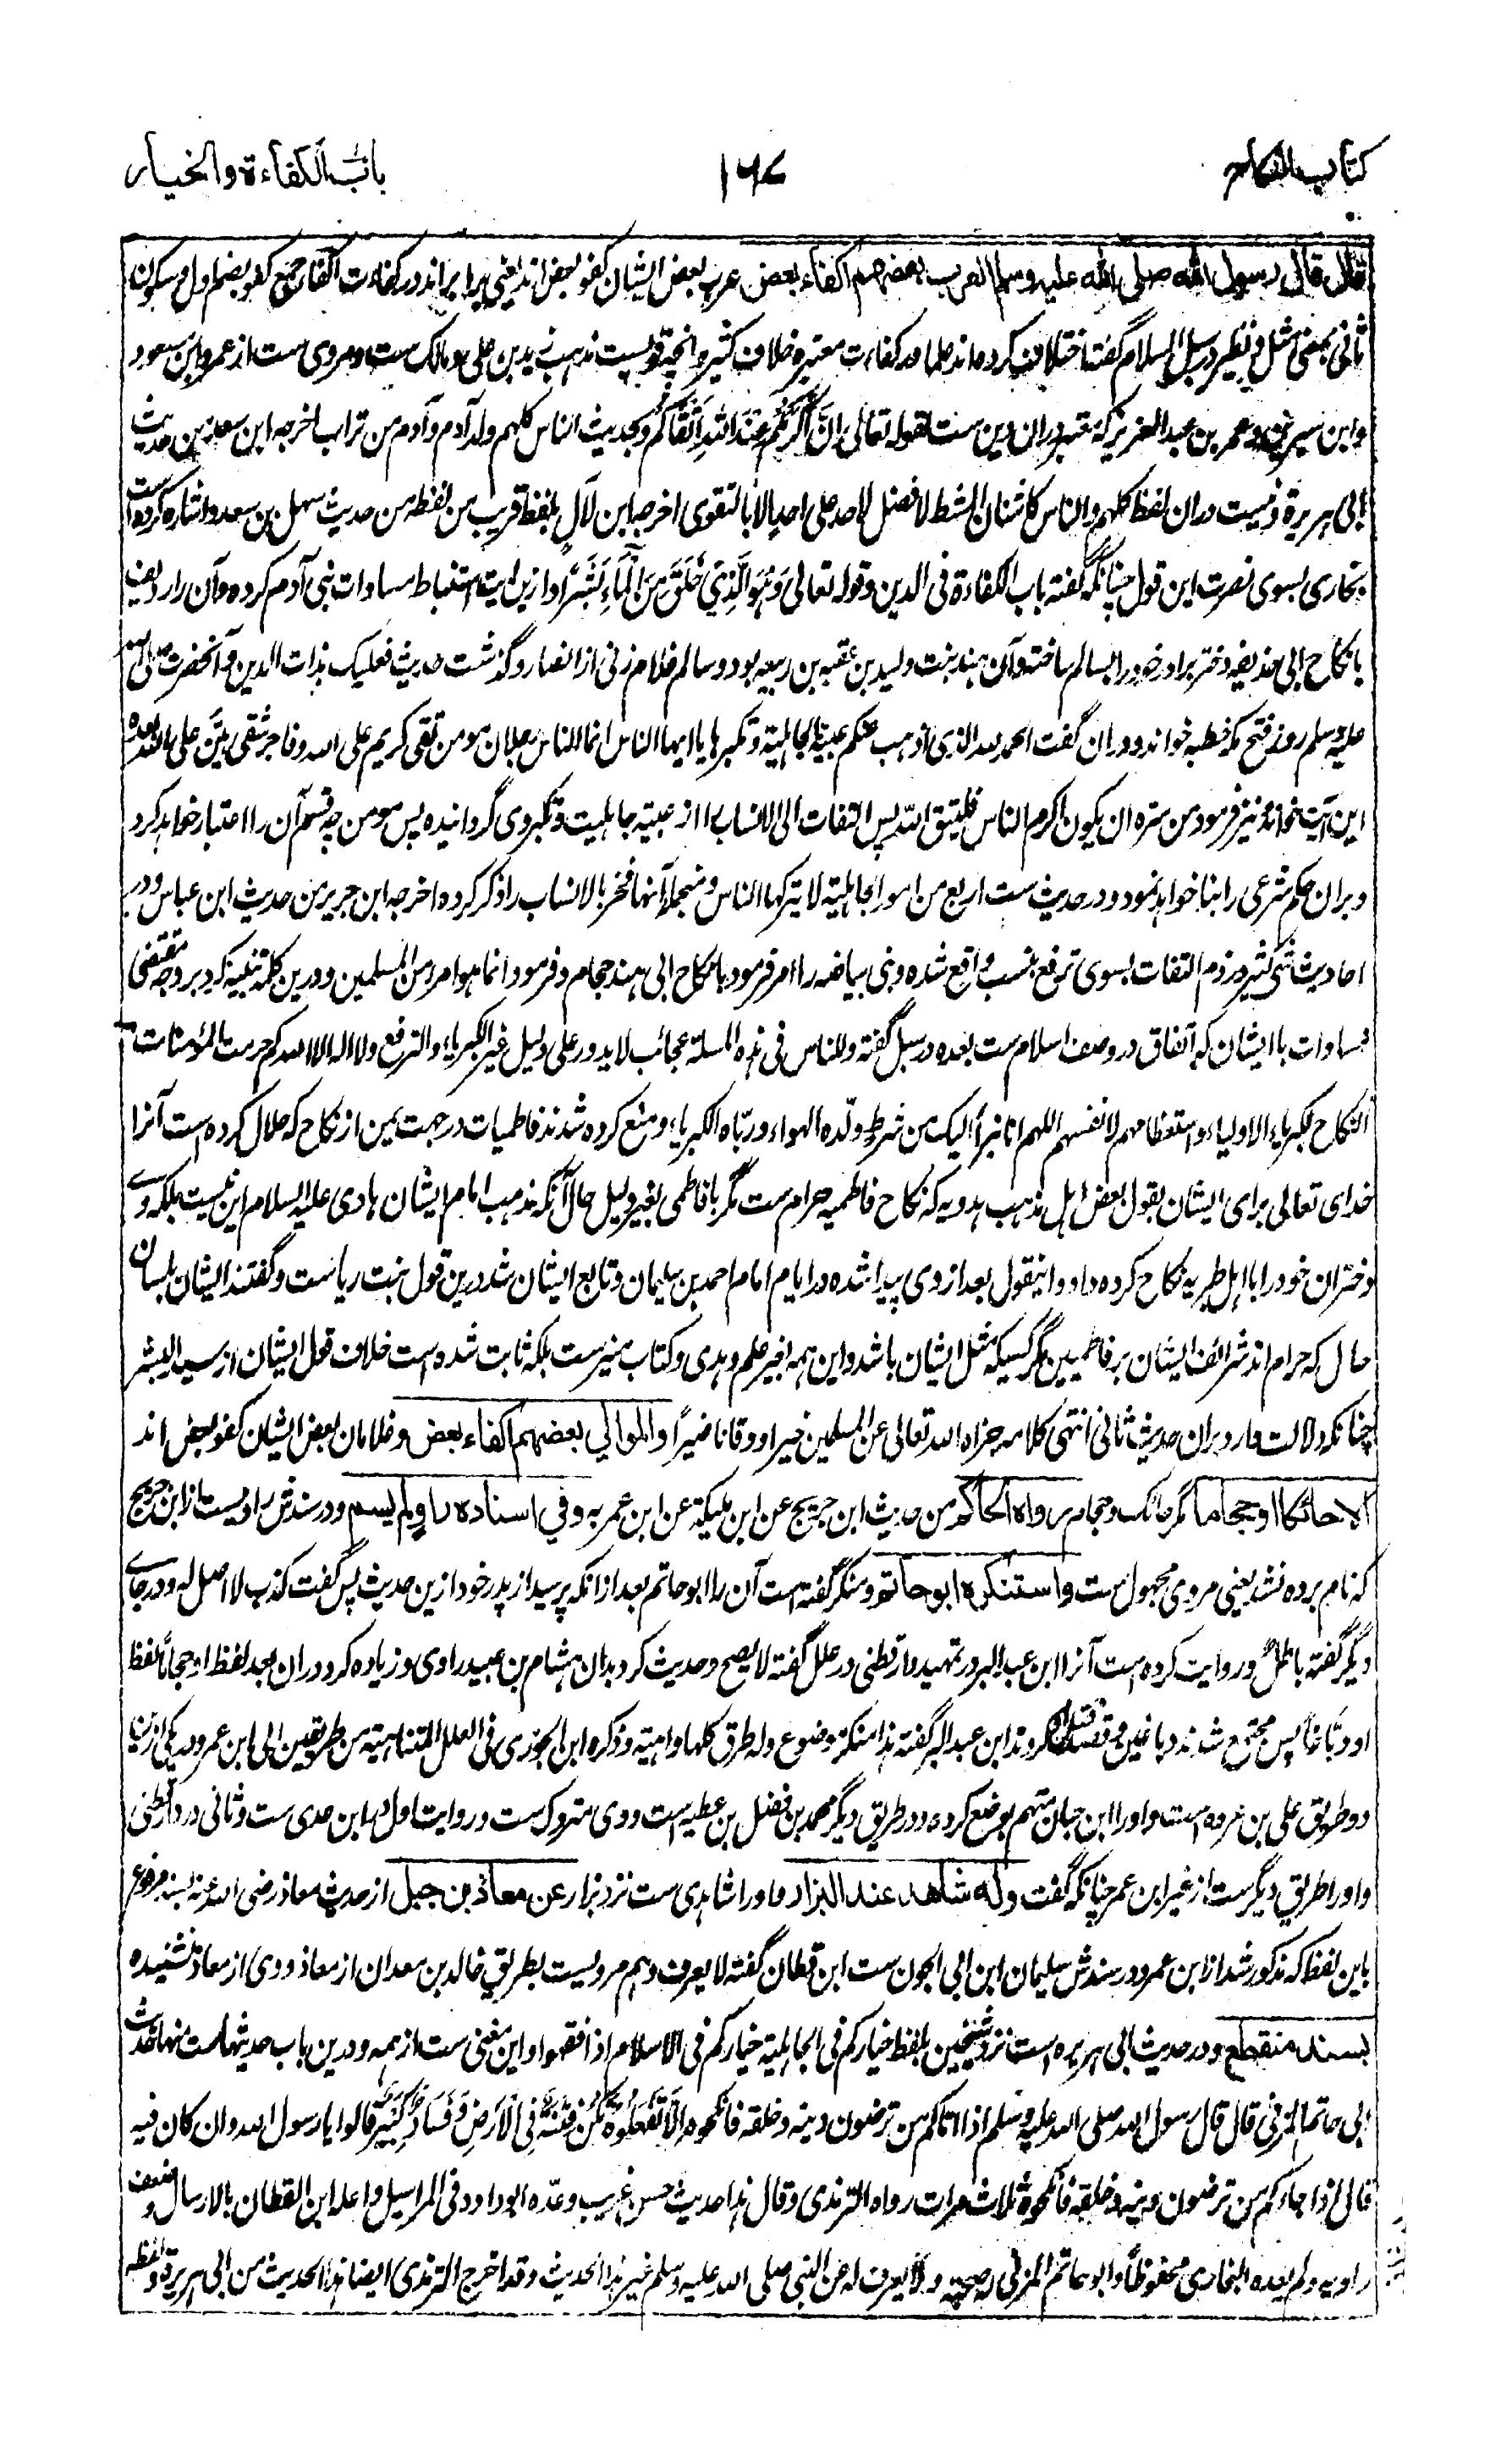 کتاب النکاح
۱۶۷
باب الکفاءة والخیار
قال قال رسول الله صلی الله علیه وسلم العرب بعضهم اکفاء بعض عرب بعض ایشان کفو بعض اند یعنی برابر اند در کفاءت اکفاء جمع کفو بضم اول و سکون
ثانی بمعنی مثل و نظیر در سبل السلام گفته اختلاف کرده اند علما در کفاءت معتبره خلاف کثیر و آنچه قویست مذهب زید بن علی و مالک ست و مروی ست از عمر و ابن مسعود
و ابن سیرین و عمر بن عبد العزیز که معتبر دران دین ست لقوله تعالی اِنَّ اَکْرَمَکُمْ عِنْدَ اللهِ اَتْقَاکُمْ و بحدیث الناس کلهم ولد آدم و آدم من تراب اخرجه ابن سعد من حدیث
ابی هریرة و نیست دران لفظ کلهم و الناس کاسنان المشط لا فضل لاحد علی احد الا بالتقوی اخرجه ابن لآل بلفظ قریب من لفظه من حدیث سهل بن سعد و اشاره کرده است
بخاری بسوی نصرت این قول چنانکه گفته باب الکفاءة فی الدین و قوله تعالی وَهُوَ الَّذِیْ خَلَقَ مِنَ الْمَاءِ بَشَرًا و ازین آیت استنباط مساوات بنی آدم کرده و آن را ردیف
بانکاح ابی حذیفه دختر برادر خود را بسالم ساخته و آن هند بنت ولید بن عقبه بن ربیعه بود و سالم غلام زنی از انصار و گذشت حدیث فعلیک بذات الدین و آنحضرت صلی الله
علیه وسلم روز فتح مکه خطبه خواند و دران گفت الحمد لله الذی اذهب عنکم عبیة الجاهلیة و تکبرها یا ایها الناس انما الناس رجلان مومن تقی کریم علی الله و فاجر شقی هین علی الله بعده
این آیت خواند و نیز فرمود من سره ان یکون اکرم الناس فلیتق الله پس التفات الی الانساب را از عبیه جاهلیت و تکبر وی گردانیده پس مومن چه قسم آن را اعتبار خواهد کرد
و بران حکم شرعی را بنا خواهد نمود و در حدیث ست اربع من امور الجاهلیة لا یترکها الناس و منجمله آنها فخر بالانساب را ذکر کرده اخرجه ابن جریر من حدیث ابن عباس و در
احادیث شی کثیر در ذم التفات بسوی ترفع بنسب واقع شده و بنی بیاضه را امر فرمود بانکاح ابی هند حجام و فرمود انما هو امرء من المسلمین و درین کلمه تنبیه کرد بر وجه مقتضی
مساوات با ایشان که اتفاق در وصف اسلام ست بعده در سبل گفته و للناس فی هذه المسئلة عجائب لا یدور علی دلیل غیر الکبریاء و الترفع و لا اله الا الله کم حرمت المؤمنات
النکاح لکبریاء الاولیاء و استعظامهم لانفسهم اللهم انا نبرأ الیک من شرط ولّده الهواء و ربّاه الکبریاء و منع کرده شدند فاطمیات در جهت یمن از نکاح که حلال کرده است آنرا
خدای تعالی برای ایشان بقول بعض اهل مذهب هدویه که نکاح فاطمیه حرام ست مگر با فاطمی بغیر دلیل حال آنکه مذهب امام ایشان هادی علیه السلام این نیست بلکه وی
دختران خود را با اهل طبریه نکاح کرده داد و اینقول بعد از وی پیدا شده در ایام امام احمد بن سلیمان و تابع ایشان شد درین قول بیت ریاست و گفتند ایشان بلسان
حال که حرام اند شرائف ایشان بر فاطمیین مگر کسیکه مثل ایشان باشد و این همه بغیر علم و هدی و کتاب منیر ست بلکه ثابت شده است خلاف قول ایشان از سید البشر
چنانکه دلالت دارد بران حدیث ثانی انتهی کلامه جزاه الله تعالی عن المسلمین خیرا و وقاناضیرًا والموالی بعضهم اکفاء بعض و غلامان بعض ایشان کفو بعض اند
الا حائکا او حجاما مگر حائک و حجام رواه الحاکم من حدیث ابن جریج عن ابن ملیکة عن ابن عمر به وفی اسناده راو لم یسم و در سندش راویست از ابن جریج
که نام برده نشد یعنی مروی مجهول ست واستنکره ابو حاتم و منکر گفته است آن را ابو حاتم بعد ازانکه پرسید از پدر خود ازین حدیث پس گفت کذب لا اصل له و در جای
دیگر گفته باطلٌ و روایت کرده است آنرا ابن عبد البر در تمهید دارقطنی در علل گفته لا یصح و حدیث کرد بدان هشام بن عبید راوی و زیاده کرد دران بعد لفظ او حجاماً لفظ
او دبّاغاً پس مجتمع شدند دباغین و قصد کردند ابن عبد البر گفته هذا منکر موضوع و له طرق کلها واهیة و ذکره ابن الجوزی فی العلل المتناهیة من طریقین الی ابن عمر در یکی ازین
دو طریق علی بن عروه است و او را ابن حبان متهم بوضع کرده و در طریق دیگر محمد بن فضل بن عطیه است و وی متروک ست و روایت اول در ابن عدی ست و ثانی در دارقطنی
و او را طریق دیگر ست از غیر ابن عمر چنانکه گفت وله شاهد عند البزار و او را شاهدی ست نزد بزار عن معاذ بن جبل از حدیث معاذ رضی الله عنه بسند مرفوع
باین لفظ که مذکور شد از ابن عمر و در سندش سلیمان ابن ابی الجون ست ابن قطان گفته لا یعرف و هم مرویست بطریق خالد بن معدان از معاذ و وی از معاذ نشنیده
بسند منقطع و در حدیث ابی هریره است نزد شیخین بلفظ خیارکم فی الجاهلیة خیارکم فی الاسلام اذا فقهوا و این مغنی ست از همه و درین باب حدیثهاست منها حدیث
ابی حاتم المزنی قال قال رسول الله صلی الله علیه وسلم اذا اتاکم من ترضون دینه و خلقه فانکحوه اِلَّا تَفْعَلُوْهُ تَکُنْ فِتْنَةٌ فِی الْاَرْضِ وَ فَسَادٌ کَبِیْرٌ قالوا یا رسول الله و ان کان فیه
قال اذا جاءکم من ترضون دینه و خلقه فانکحوه ثلاث مرات رواه الترمذی و قال هذا حدیث حسن غریب و عدّه ابو داود فی المراسیل و اعله ابن القطان بالارسال و ضعف
راویه و لم یعده البخاری محفوظاً و ابو حاتم المزنی له صحبة و لا یعرف له عن النبی صلی الله علیه وسلم غیر هذا الحدیث و قد اخرج الترمذی ایضا هذا الحدیث من ابی هریرة و لفظه